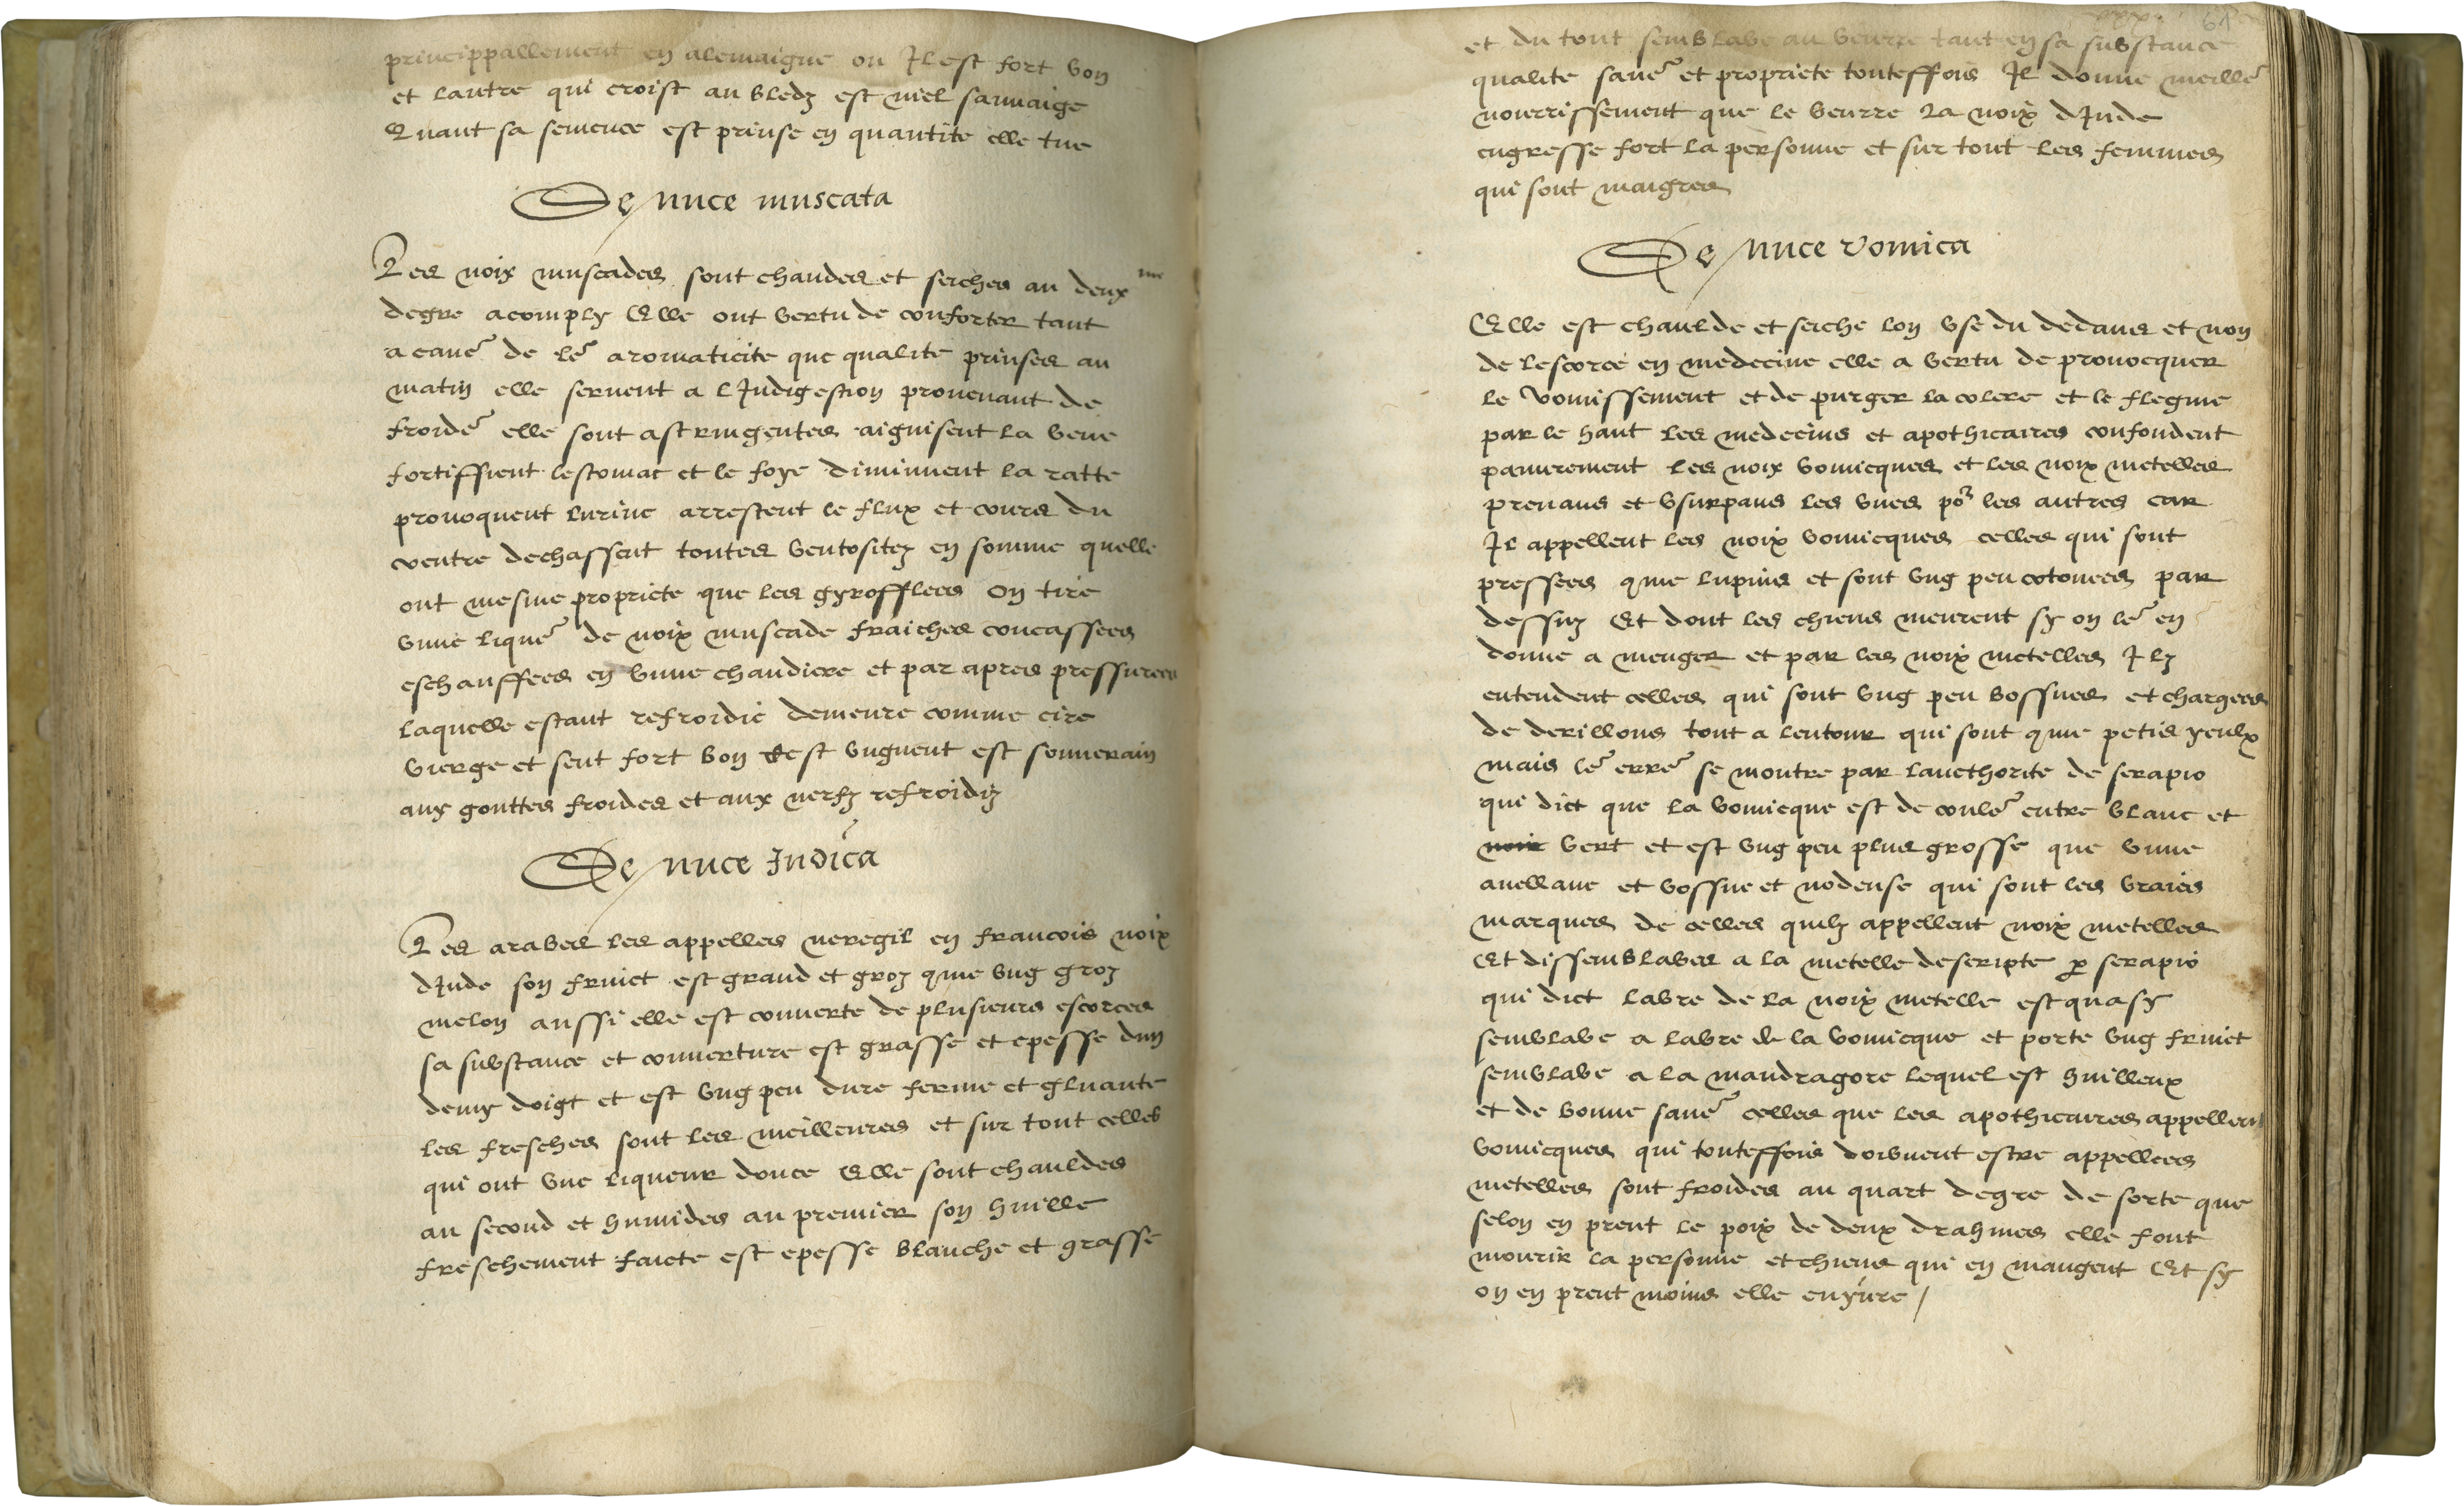 princippallement en alemaigne ou Il est fort bon
et lautre qui croist au bledz est miel sauuaige
Quant sa semence est prinse en quantite elle tue
De nuce muscata
Les noix muscades sont chaudes et seiches au deux me
degre acomply Elle ont vertu de conforter tant
a cause de le aromaticite que qualite prinses au
matin elle seruent a lIndigestion prouenant de
froide elle sont astringentes aiguisent la veue
fortiffient lestomac et le foye diminuent la ratte
prouoquent lurine arrestent le flux et cours du
ventre dechassent toutes ventositez en somme quelle
ont mesme propriete que les gyrofflees on tire
vnne lique de noix muscade fraiches concassees
eschauffees en vnne chaudiere et par apres pressurees
laquelle estant refroidie demeure comme cire
vierge et sent fort bon cest vnguent est souuerain
aux gouttes froides et aux nerfz refroidiz
De nuce Indica
Les arabes les appelles neregil en francois noix
dInde son fruict est grand et groz qme vng groz
melon aussi elle est couuerte de plusieurs escorces
sa substance et couuerture est grasse et epesse dun
demy doigt et est vng peu dure ferme et gluante
les fresches sont les meilleures et sur tout celles
qui ont vne liqueur douce Elle sont chauldes
au second et humides au premier son huille
freschement faicte est epesse blanche et grasse
61
et du tout semblabe au beurre tant en sa substance
qualite saue et propriete touteffois Il donne meille
nourrissement que le beurre La noix dInde
engresse fort la personne et sur tout les femmes
qui sont maigres
De nuce vomica
Elle est chaulde et seiche lon vse du dedans et non
de lescorce en medecine elle a vertu de prouocquer
le vomissement et de purger la colere et le flegme
par le haut les medecins et apothicaires confondent
pauurement les noix vomicques et les noix metelles
prenans et vsurpans les vnes po les autres car
Il appellent les noix vomicques celles qui sont
pressees qme lupins et sont vng peu cotonees par
dessuz Et dont les chiens meurent sy on le en
donne a menger et par les noix metelles Ilz
entendent celles qui sont vng peu bossues et chargees
de derillons tout a lentour qui sont qme petis yeulx
mais le erre se montre par laucthorite de serapio
qui dict que la vomicque est de coule entre blanc et
noir vert et est vng peu plus grosse que vnne
auellane et bossue et nodeuse qui sont les vraies
marques de celles quilz appellent noix metelles
Et dissemblabes a la metelle descripte p serapio
qui dict labre de la noix metelle est quasy
semblabe a labre de la vomicque et porte vng fruict
semblabe a la mandragore lequel est huilleux
et de bonne saue celles que les apothicaires appellent
vomicques qui touteffois doibuent estre appellees
metelles sont froides au quart degre de sorte que
selon en prent le poix de deux drahmes elle font
mourir la personne et chiens qui en maugent Et sy
on en prent moins elle enyure /